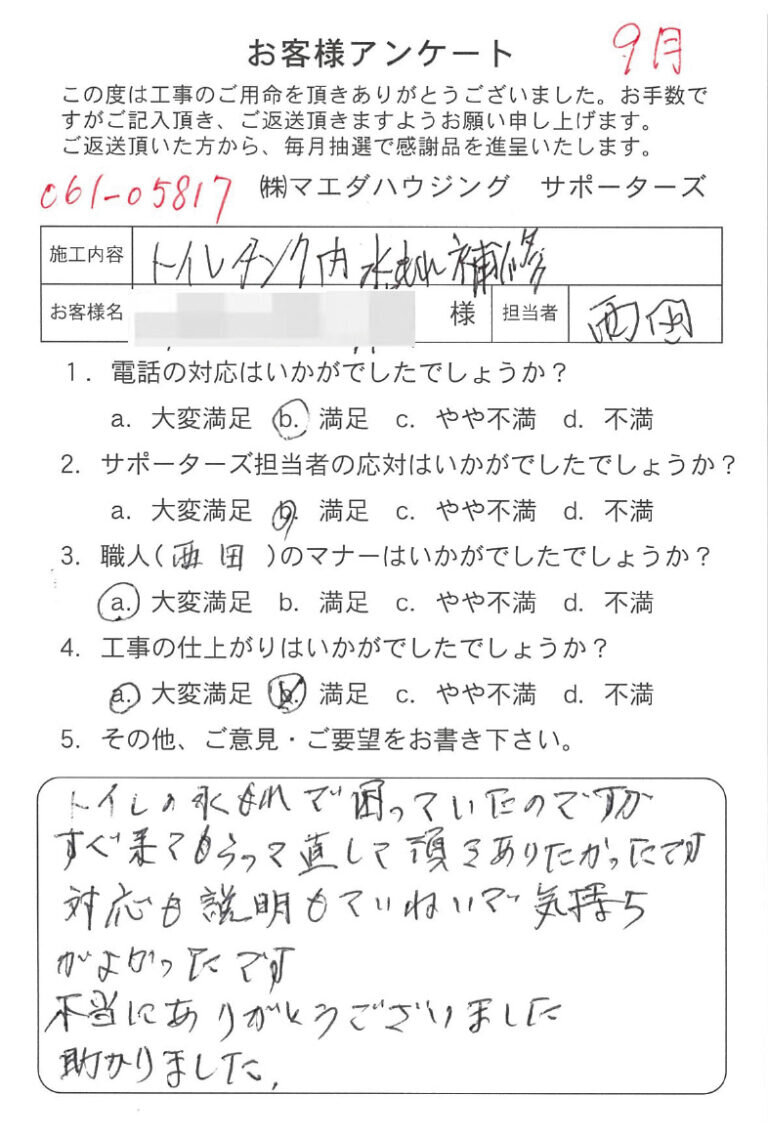 お客様アンケート 9月
この度は工事のご用命を頂きありがとうございました。お手数で
すがご記入頂き、ご返送頂きますようお願い申し上げます。
ご返送頂いた方から、毎月抽選で感謝品を進呈いたします。
C61-05817 ㈱マエダハウジング サポーターズ
施工内容 トイレタンク内水もれ補修
お客様名 様 担当者 西田
1. 電話の対応はいかがでしたでしょうか？
a. 大変満足 b. 満足 c. やや不満 d. 不満
2. サポーターズ担当者の応対はいかがでしたでしょうか？
a. 大変満足 b. 満足 c. やや不満 d. 不満
3. 職人(西田)のマナーはいかがでしたでしょうか？
a. 大変満足 b. 満足 c. やや不満 d. 不満
4. 工事の仕上がりはいかがでしたでしょうか？
a. 大変満足 b. 満足 c. やや不満 d. 不満
5. その他、ご意見・ご要望をお書き下さい。
トイレの水もれで困っていたのですが
すぐ来てもらって直して頂きありたかったです
対応も説明もていねいで気持ち
がよかったです
本当にありがとうございました
助かりました.